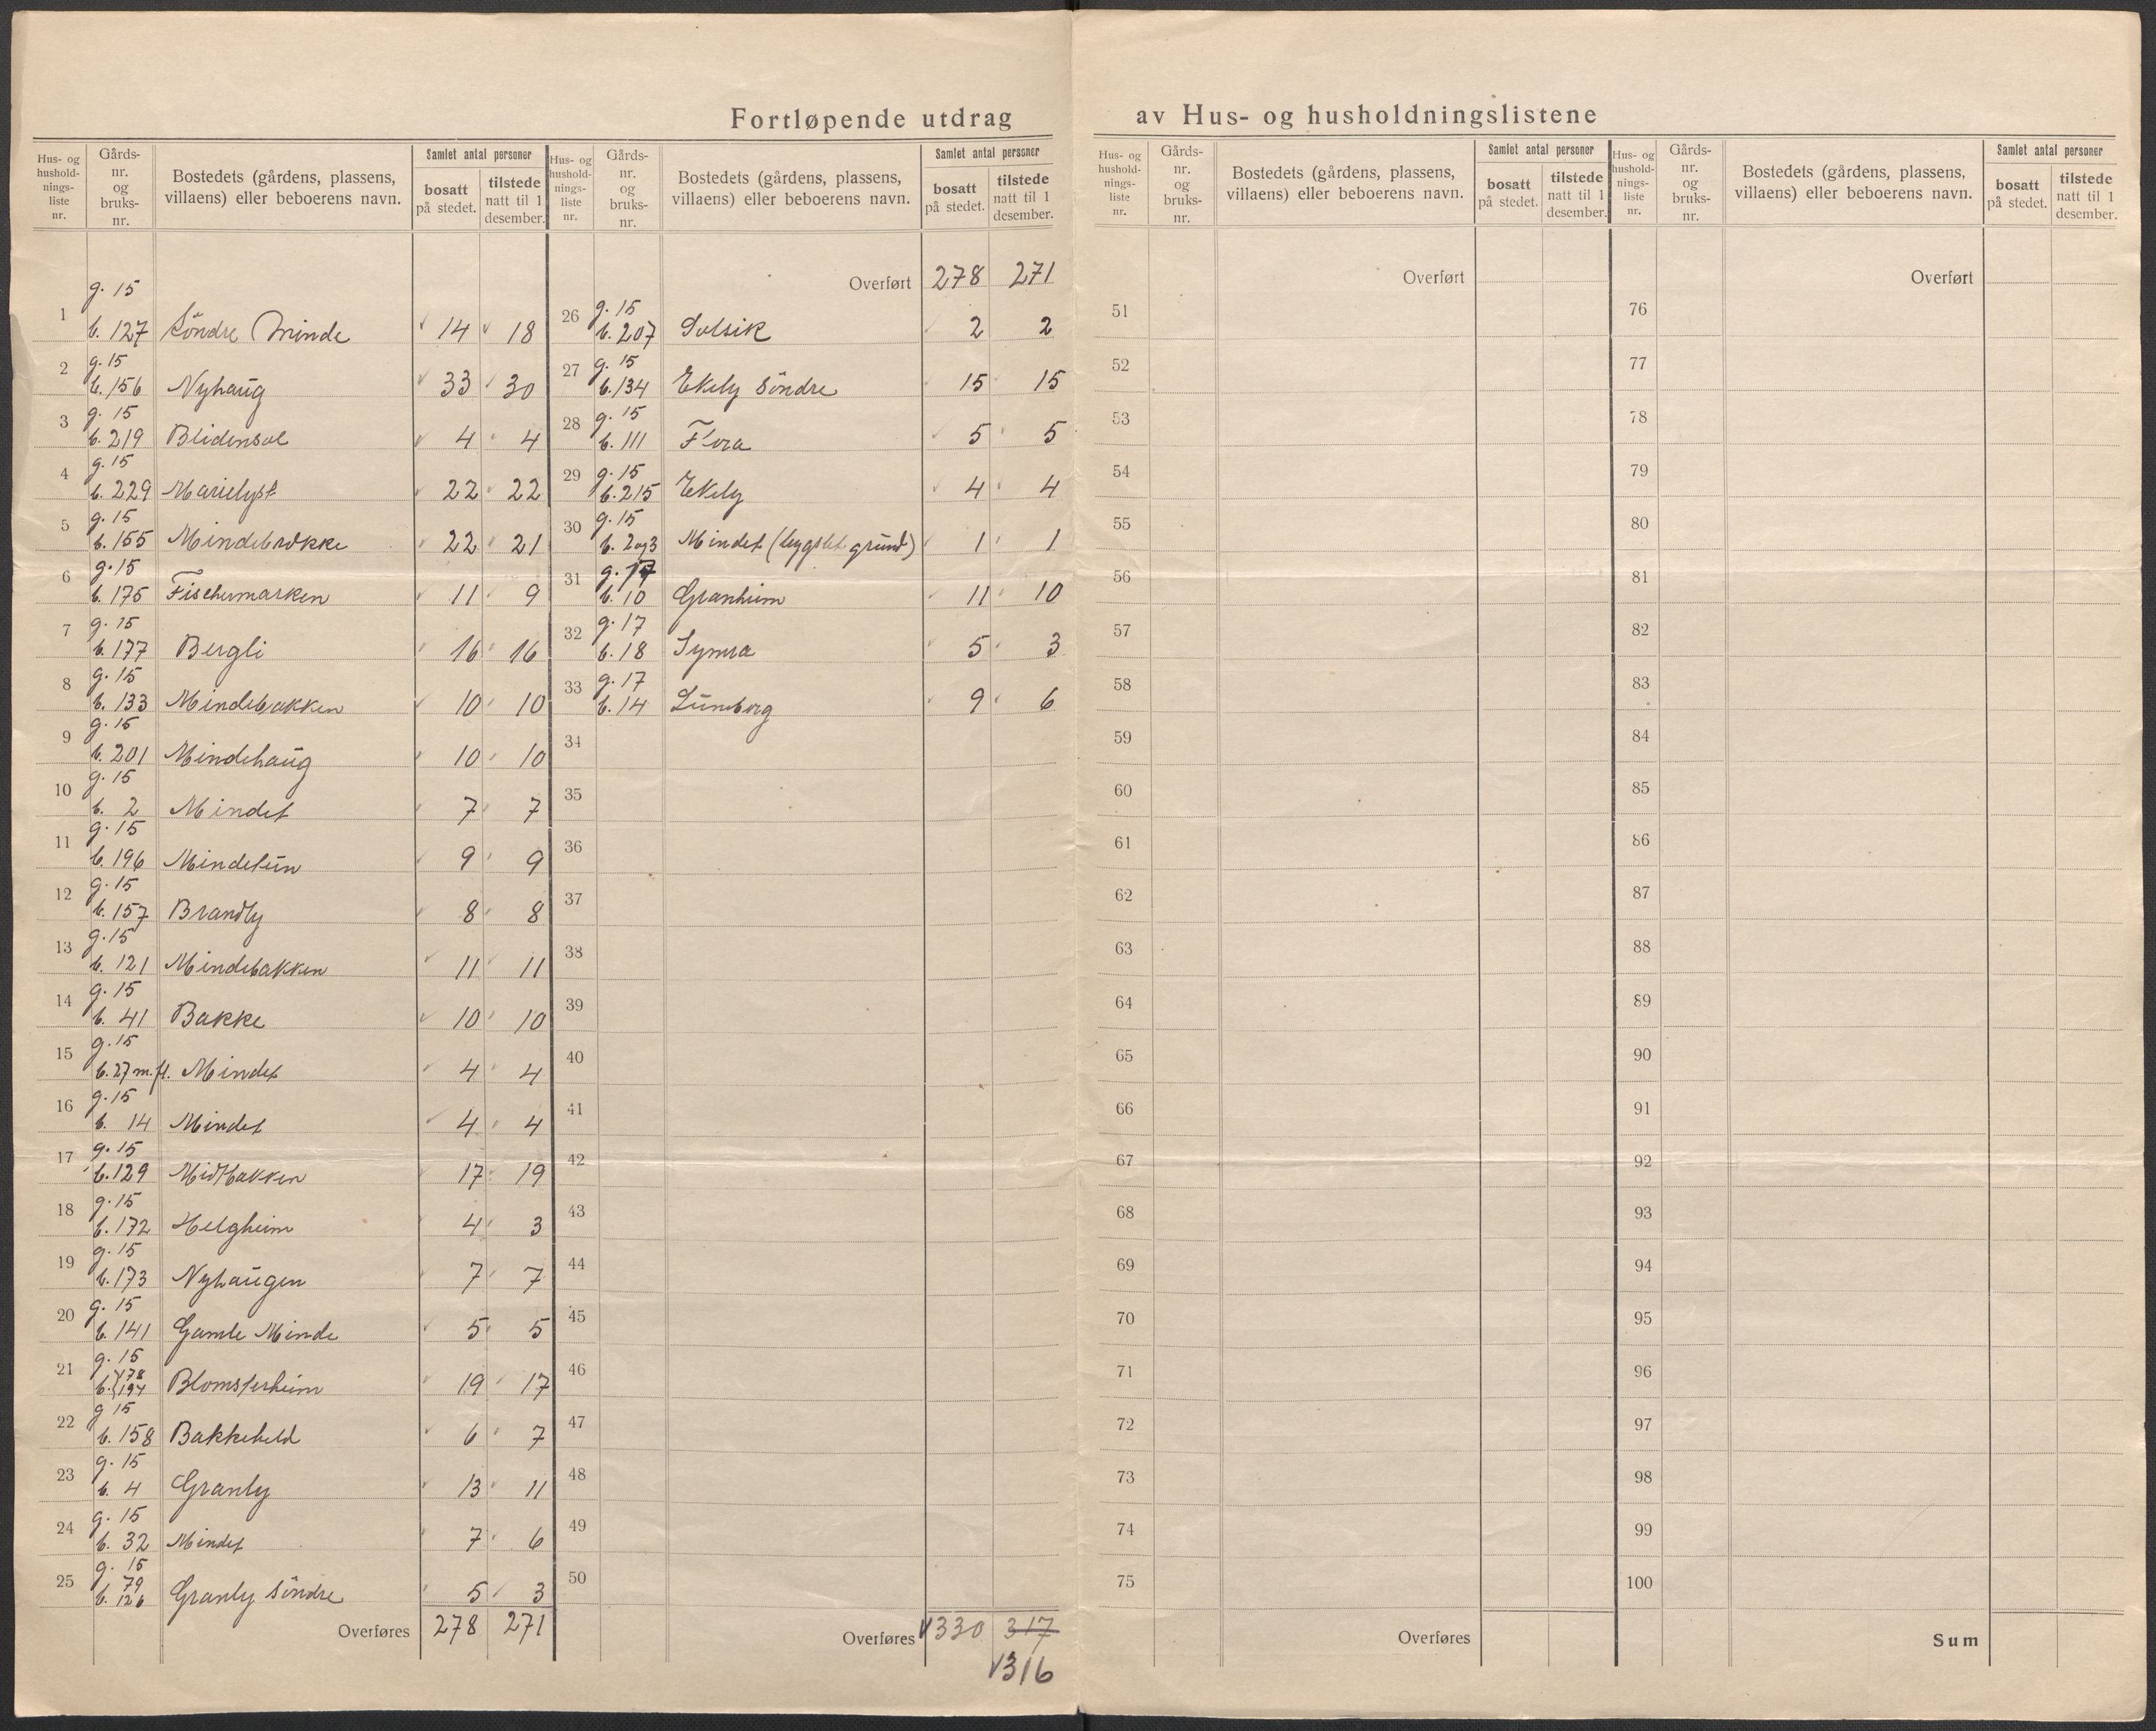 Fortløpende utdrag av Hus- og husholdningslistene
Hus- og hushold-nings-liste nr. Gårds-nr. og bruks-nr. Bostedets (gårdens, plassens, villaens) eller beboerens navn. Samlet antal personer bosatt på stedet. tilstede natt til 1 desember.
1 g. 15 b. 127 Söndre Minde 14 18
2 g. 15 b. 156 Nyhaug 33 30
3 g. 15 b. 219 Blidensol 4 4
4 g. 15 b. 229 Marielyst 22 22
5 g. 15 b. 155 Mindebrekke 22 21
6 g. 15 b. 175 Fischermarken 11 9
7 g. 15 b. 177 Bergli 16 16
8 g. 15 b. 133 Mindebakken 10 10
9 g. 15 b. 201 Mindehaug 10 10
10 g. 15 b. 2 Mindet 7 7
11 g. 15 b. 196 Mindetun 9 9
12 g. 15 b. 157 Brandly 8 8
13 g. 15 b. 121 Mindebakken 11 11
14 g. 15 b. 41 Bakke 10 10
15 g. 15 b. 27 m.fl. Mindet 4 4
16 g. 15 b. 14 Mindet 4 4
17 g. 15 b. 129 Midtbakken 17 19
18 g. 15 b. 172 Helgheim 4 3
19 g. 15 b. 173 Nyhaugen 7 7
20 g. 15 b. 141 Gamle Minde 5 5
21 g. 15 b. 178 194 Blomsterheim 19 17
22 g 15 b. 158 Bakkeheld 6 7
23 g. 15 b. 4 Granly 13 11
24 g. 15 b. 32 Mindet 7 6
25 g. 15 b. 79 126 Granly Söndre 5 3
Overføres 278 271
Hus- og hushold-nings-liste nr. Gårds-nr. og bruks-nr. Bostedets (gårdens, plassens, villaens) eller beboerens navn. Samlet antal personer bosatt på stedet. tilstede natt til 1 desember.
Overført 278 271
26 g. 15 b. 207 Solsik 2 2
27 g. 15 b. 134 Ekely Söndre 15 15
28 g. 15 b. 111 Flora 5 5
29 g. 15 b. 215 Ekely 4 4
30 g. 15 b. 2og3 Mindet (bygslet grund) 1 1
31 g. 17 b. 10 Granheim 11 10
32 g. 17 b. 18 Symra 5 3
33 g. 17 b. 14 Luneborg 9 6
34
35
36
37
38
39
40
41
42
43
44
45
46
47
48
49
50
Overføres 330 317
316
Hus- og hushold-nings-liste nr. Gårds-nr. og bruks-nr. Bostedets (gårdens, plassens, villaens) eller beboerens navn. Samlet antal personer bosatt på stedet. tilstede natt til 1 desember.
Overført
51
52
53
54
55
56
57
58
59
60
61
62
63
64
65
66
67
68
69
70
71
72
73
74
75
Overføres
Hus- og hushold-nings-liste nr. Gårds-nr. og bruks-nr. Bostedets (gårdens, plassens, villaens) eller beboerens navn. Samlet antal personer bosatt på stedet. tilstede natt til 1 desember.
Overført
76
77
78
79
80
81
82
83
84
85
86
87
88
89
90
91
92
93
94
95
96
97
98
99
100
Sum